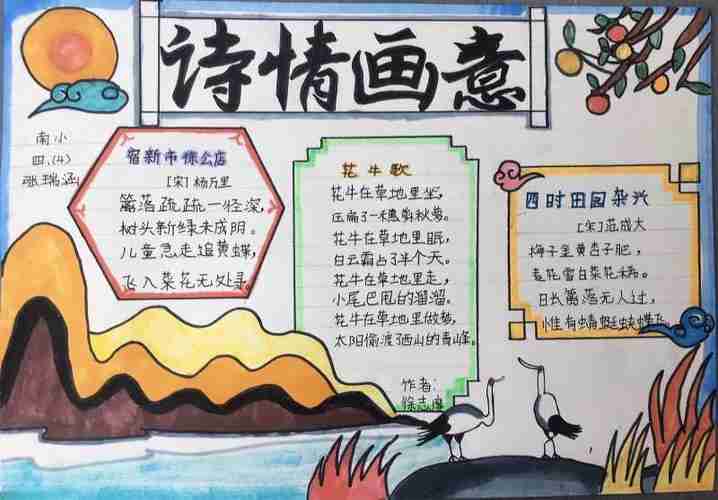 诗情画意
南小
四.(4)
张瑞涵
宿新市徐公店
[宋]杨万里
篱落疏疏一径深,
树头新绿未成阴。
儿童急走追黄蝶,
飞入菜花无处寻。
花牛歌
花牛在草地里坐,
压扁了一穗剪秋萝。
花牛在草地里眠,
白云霸占了半个天。
花牛在草地里走,
小尾巴甩的溜溜。
花牛在草地里做梦,
太阳偷渡了西山的青峰。
作者:
徐志摩
四时田园杂兴
[宋]范成大
梅子金黄杏子肥,
麦花雪白菜花稀。
日长篱落无人过,
惟有蜻蜓蛱蝶飞。